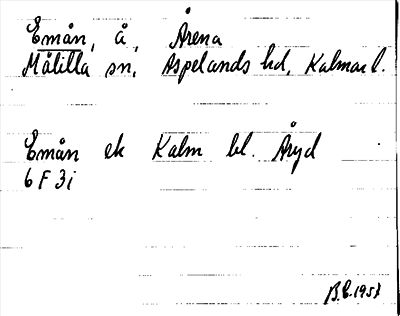 Emån, å, Årena
Målilla sn, Aspelands hd, Kalmar l.
Emån ek Kalm bl. Åryd
6 F 3i
B.E. 1951